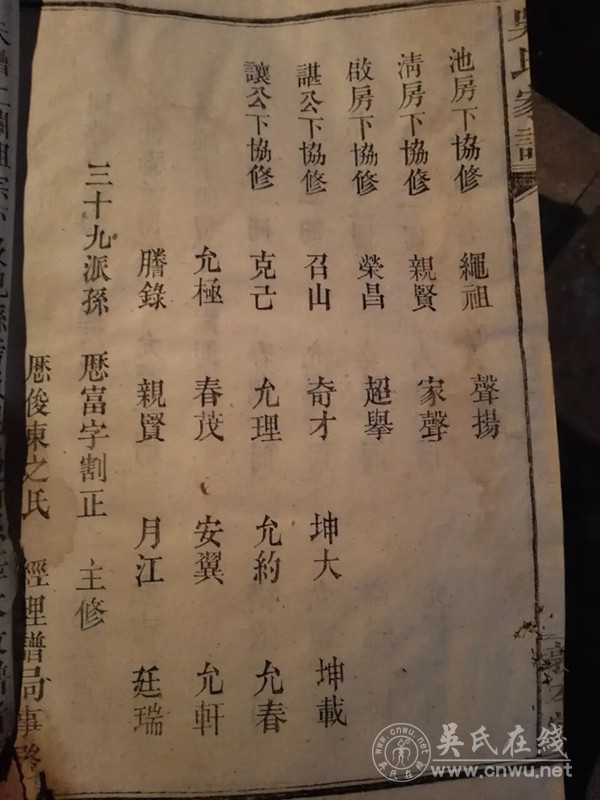 吳氏家譜
池房下協修 繩祖 聲揚
淸房下協修 親賢 家聲
啟房下協修 榮昌 超舉
諶公下協修 召山 奇才 坤大 坤載
讓公下協修 克己 允理 允約 允春
允極 春茂 安翼 允軒
謄錄 親賢 月江 廷瑞
三十九派孫 歷富字割正 主修
歷俊東之氏 經理譜局事務
吳氏在线
www.cnwu.net